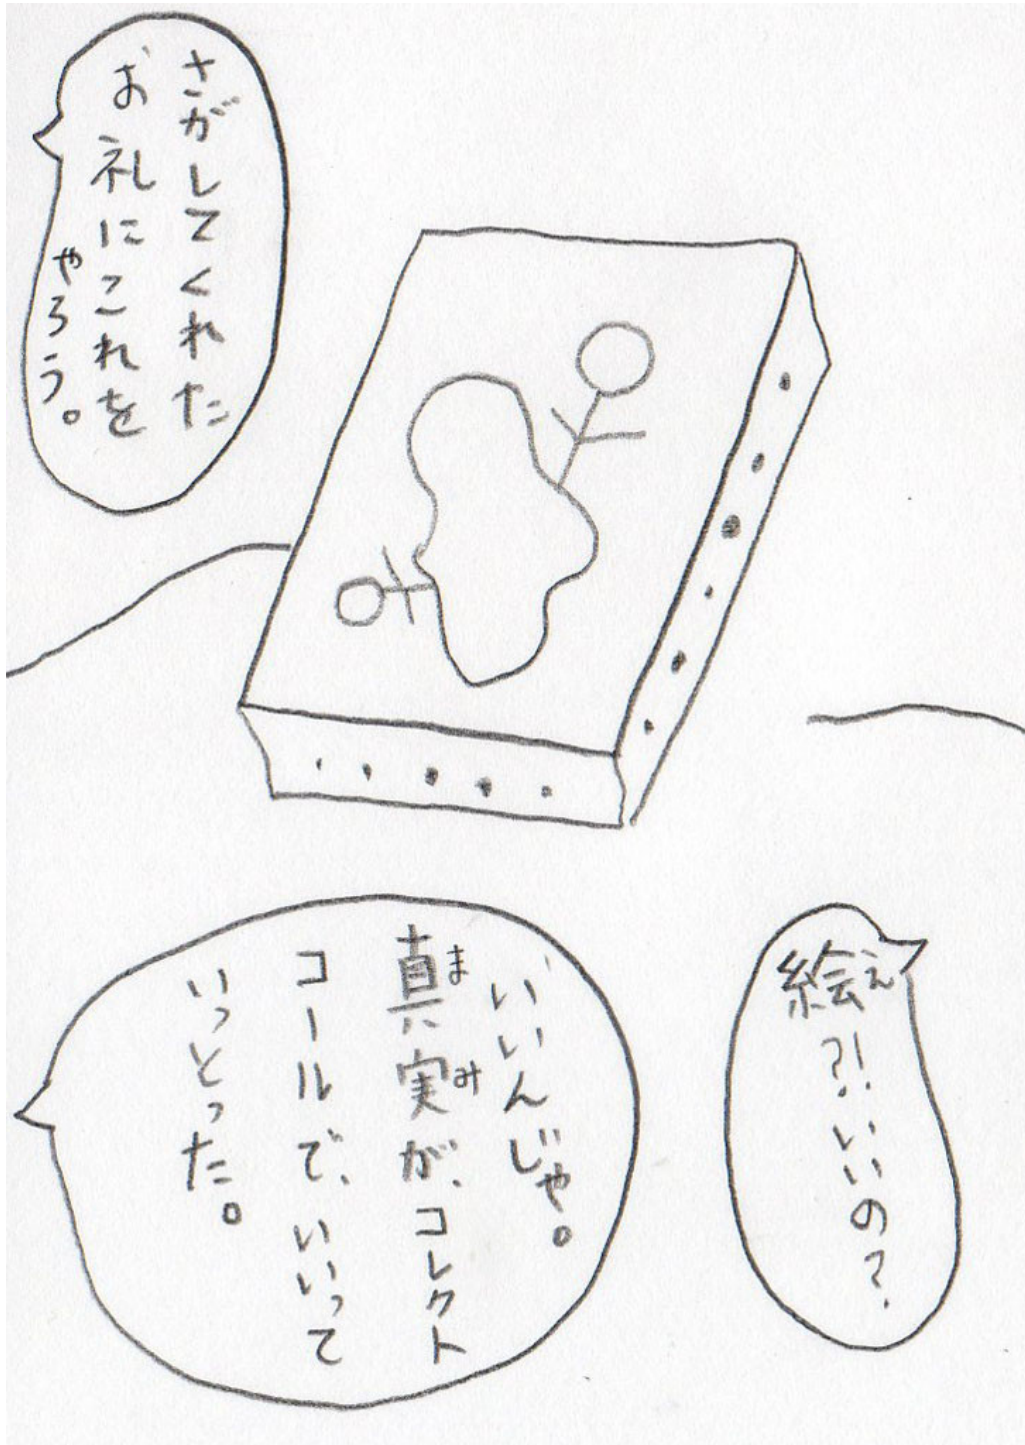 さがしてくれた
お礼にこれを
やろう。
絵?!いいの?
え
いいんじゃ。
真実が、コレクト
まみ
コールで、いいって
いっとった。